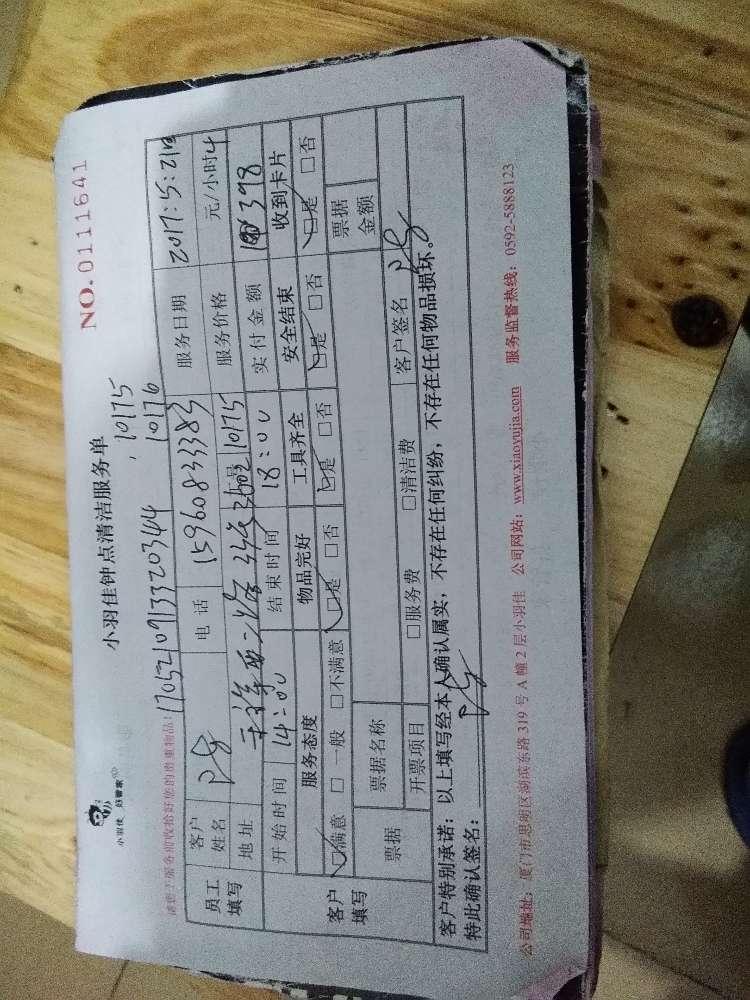 小羽佳 好管家
小羽佳钟点清洁服务单
NO.0111641
请您于服务前收拾好您的贵重物品!
17052109133203444 , 10175
10176
员工填写
客户姓名
电话 15960833383
服务日期 2017.5.21
地址
10175
服务价格 元/小时
开始时间 14:00 结束时间 18:00 实付金额 398
客户填写
服务态度 物品完好 工具齐全 安全结束 收到卡片
满意 □ 一般 □ 不满意 是 □ 否 是 □ 否 是 □ 否 是 □ 否
票据 票据名称 票据金额
开票项目 □ 服务费 □ 清洁费 客户签名
客户特别承诺:以上填写经本人确认属实,不存在任何纠纷,不存在任何物品损坏。
特此确认签名:
公司地址:厦门市思明区湖滨东路 319 号 A 幢 2 层小羽佳 公司网站:www.xiaoyujia.com 服务监督热线:0592-5888123